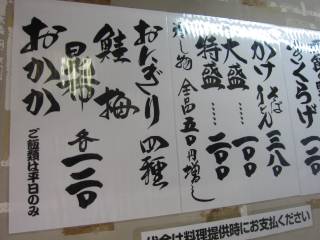 くらげ
かけそばうどん 三八〇
大盛……一〇〇
特盛……二〇〇
冷し物 全品五〇円増し
おにぎり四種
鮭 梅
昆布 各一二〇
おかか
ご飯類は平日のみ
代金は料理提供時にお支払ください